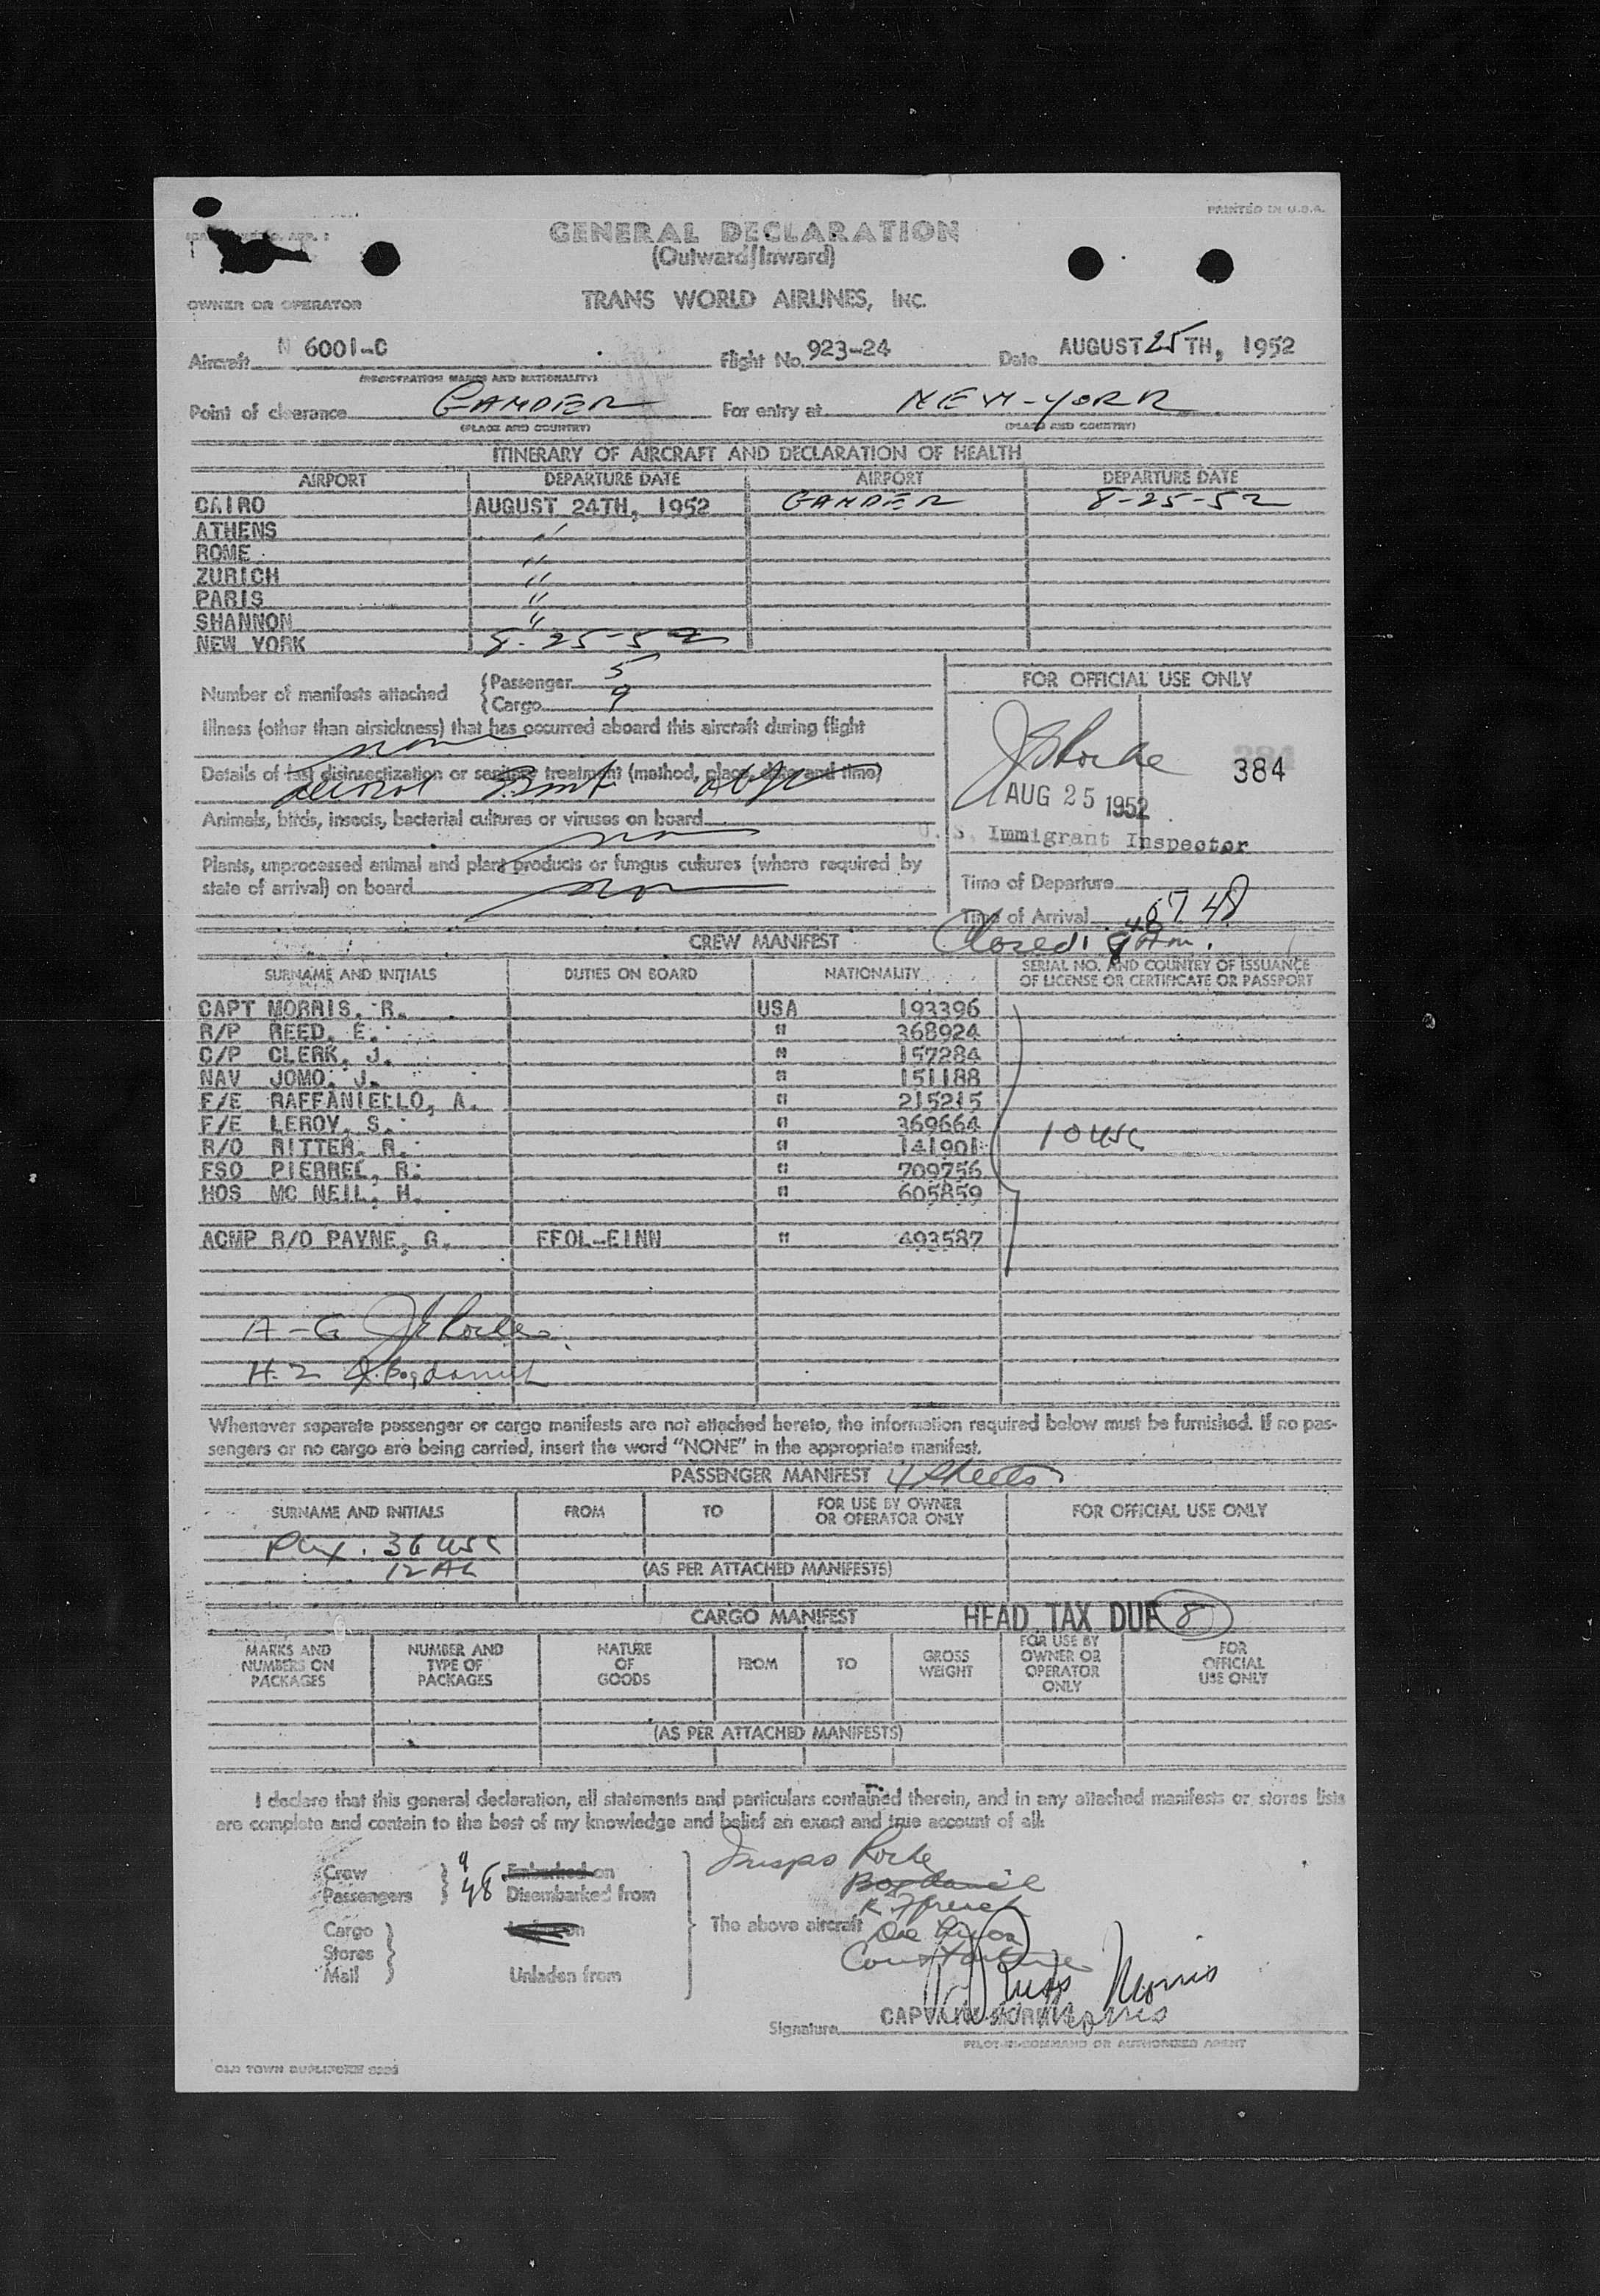 PRINTED IN U.S.A.
GENERAL DECLARATION
(Outward/Inward)
OWNER OR OPERATOR TRANS WORLD AIRLINES, INC.
Aircraft N 6001-C Flight No. 923-24 Date AUGUST 25TH, 1952
(REGISTRATION MARKS AND NATIONALITY)
Point of clearance GANDER For entry at NEW-YORK
(PLACE AND COUNTRY) (PLACE AND COUNTRY)
ITINERARY OF AIRCRAFT AND DECLARATION OF HEALTH
AIRPORT DEPARTURE DATE AIRPORT DEPARTURE DATE
CAIRO AUGUST 24TH, 1952 GANDER 8-25-52
ATHENS "
ROME "
ZURICH "
PARIS "
SHANNON "
NEW YORK 8-25-52
Number of manifests attached Passenger 5
Cargo 9
FOR OFFICIAL USE ONLY
Illness (other than airsickness) that has occurred aboard this aircraft during flight
none
Details of last disinsectization or sanitary treatment (method, place, date and time)
aerosol
384
AUG 25 1952
Animals, birds, insects, bacterial cultures or viruses on board
U.S. Immigrant Inspector
Plants, unprocessed animal and plant products or fungus cultures (where required by
state of arrival) on board
Time of Departure
Time of Arrival 0748
CREW MANIFEST Closed: 8 40 Am.
SURNAME AND INITIALS DUTIES ON BOARD NATIONALITY SERIAL NO. AND COUNTRY OF ISSUANCE
OF LICENSE OR CERTIFICATE OR PASSPORT
CAPT MORRIS, R. USA 193396
R/P REED, E. " 368924
C/P CLERK, J. " 157284
NAV JOMO, J. " 151188
F/E RAFFANIELLO, A. " 215215
F/E LEROY, S. " 369664
R/O RITTER, R. " 141901
FSO PIERREL, R. " 709756
HOS MC NEIL, H. " 605859
10 USC
ACMP R/O PAYNE, G. FFOL-EINN " 493587
A-G J Roche
H-Z J. Bogdanich
Whenever separate passenger or cargo manifests are not attached hereto, the information required below must be furnished. If no pas-
sengers or no cargo are being carried, insert the word "NONE" in the appropriate manifest.
PASSENGER MANIFEST 4 sheets
SURNAME AND INITIALS FROM TO FOR USE BY OWNER
OR OPERATOR ONLY FOR OFFICIAL USE ONLY
Pax. 36 USC
12 AL (AS PER ATTACHED MANIFESTS)
CARGO MANIFEST HEAD TAX DUE 8
MARKS AND
NUMBERS ON
PACKAGES NUMBER AND
TYPE OF
PACKAGES NATURE
OF
GOODS FROM TO GROSS
WEIGHT FOR USE BY
OWNER OR
OPERATOR
ONLY FOR
OFFICIAL
USE ONLY
(AS PER ATTACHED MANIFESTS)
I declare that this general declaration, all statements and particulars contained therein, and in any attached manifests or stores lists
are complete and contain to the best of my knowledge and belief an exact and true account of all:
Crew 9 Embarked on
Passengers 48 Disembarked from
Insps Roche
Cargo
Stores
Mail Unladen from
The above aircraft
Signature CAPTAIN MORRIS
Morris
PILOT-IN-COMMAND OR AUTHORIZED AGENT
OLD TOWN